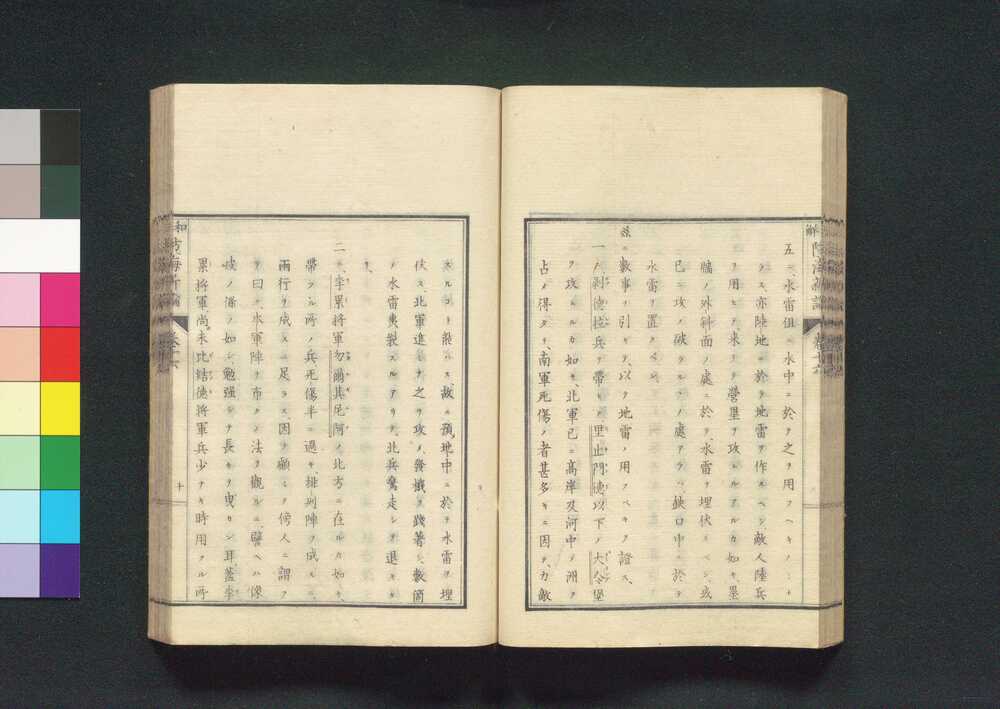 五ニ、水雷但ニ水中ニ於テ之ヲ用フヘキノミニ
ラス、亦陸地ニ於テ地雷ヲ作スヘシ、敵人陸兵
ヲ用ヒテ、来リテ營壘ヲ攻ムルアルカ如キ、壘
牆ノ外斜面ノ處ニ於テ、水雷ヲ埋伏スベシ、或
已ニ攻メ破タルノ處アラハ、缺口中ニ於テ
水雷ヲ置クベシ、
茲ニ數事ヲ引キテ、以テ地雷ノ用フベキヲ證ス、
一ノ、利德拉兵ヲ帶ヒテ里出門德以下ノ大令堡
ヲ攻ムルカ如キ、北軍已ニ高岸及河中ノ洲ヲ
占メ得タリ、南軍死傷ノ者甚多キニ因テ、力敵
スルコト能ハス、故ニ預地中ニ於テ水雷ヲ埋
伏ス、北軍進ミテ之ヲ攻メ、發機ヲ践著シ、數箇
ノ水雷轟裂スルアリテ、北兵奔走シテ退キタ
リ、
二ニ、李累將軍勿爾其尼阿ノ北方ニ在ルカ如キ、
帶フル所ノ兵死傷半ニ過キ、排列陣ヲ成スニ、
兩行ヲ成スニ足ラス、因テ顧ミテ傍人ニ謂フ
テ曰ク、本軍陣ヲ布クノ法ヲ觀ルニ、譬ヘハ像
皮ノ條ノ如シ、勉强シテ長キヲ曳カン耳、蓋李
累將軍、尚未比結德將軍兵少ナキ時用フル所
和
解
防海新論
卷十六
十